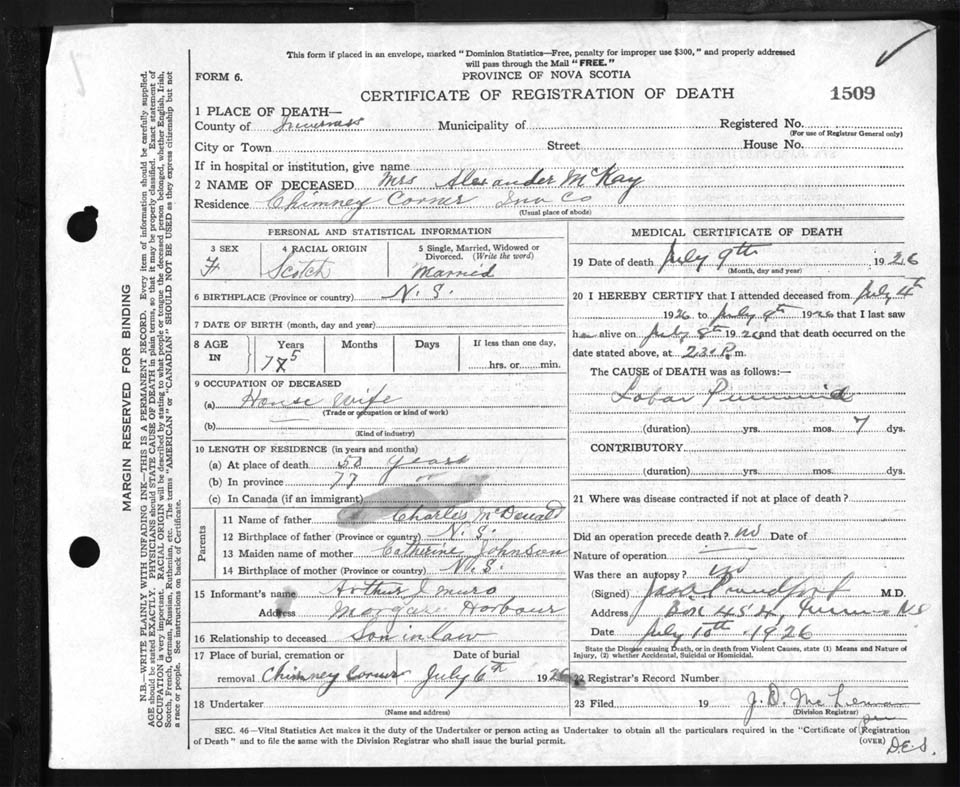 This form if placed in an envelope, marked "Dominion Statistics—Free, penalty for improper use $300," and properly addressed
will pass through the Mail "FREE."
FORM 6.
PROVINCE OF NOVA SCOTIA
CERTIFICATE OF REGISTRATION OF DEATH
1509
1 PLACE OF DEATH—
County of Inverness Municipality of Registered No.
(For use of Registrar General only)
City or Town Street House No.
If in hospital or institution, give name
2 NAME OF DECEASED Mrs Alexander McKay
Residence Chimney Corner Inv Co
(Usual place of abode)
PERSONAL AND STATISTICAL INFORMATION
3 SEX
F
4 RACIAL ORIGIN
Scotch
5 Single, Married, Widowed or
Divorced. (Write the word)
Married
6 BIRTHPLACE (Province or country) N.S.
7 DATE OF BIRTH (month, day and year)
8 AGE
IN
Years Months Days If less than one day,
hrs. or min.
9 OCCUPATION OF DECEASED
(a) House Wife
(Trade or occupation or kind of work)
(b)
(Kind of industry)
10 LENGTH OF RESIDENCE (in years and months)
(a) At place of death 50 years
(b) In province 77
(c) In Canada (if an immigrant)
Parents
11 Name of father Charles McDonald
12 Birthplace of father (Province or country) N.S.
13 Maiden name of mother Catherine Johnson
14 Birthplace of mother (Province or country) N.S.
15 Informant's name Arthur
Address Margaree Harbour
16 Relationship to deceased Son in law
17 Place of burial, cremation or
removal Chimney Corner
Date of burial
July 6th 1926
18 Undertaker
(Name and address)
MEDICAL CERTIFICATE OF DEATH
19 Date of death July 9th 1926
(Month, day and year)
20 I HEREBY CERTIFY that I attended deceased from July 4th
1926 to July 8th 1926 that I last saw
h alive on July 8th 1926 and that death occurred on
date stated above, at m.
The CAUSE of DEATH was as follows:—
Lobar
(duration) yrs. mos. 7 dys.
CONTRIBUTORY.
(duration) yrs. mos. dys.
21 Where was disease contracted if not at place of death?
Did an operation precede death? no Date of
Nature of operation
Was there an autopsy? no
(Signed) M.D.
Address Box 454
Date July 10th 1926
State the Disease causing Death, or in death from Violent Causes, state (1) Means and Nature of
Injury, (2) whether Accidental, Suicidal or Homicidal.
22 Registrar's Record Number
23 Filed 19 J. D. McLennan
(Division Registrar)
SEC. 46—Vital Statistics Act makes it the duty of the Undertaker or person acting as Undertaker to obtain all the particulars required in the "Certificate of Registration
of Death" and to file the same with the Division Registrar who shall issue the burial permit.
(OVER)
D.E.S.
MARGIN RESERVED FOR BINDING
N.B.—WRITE PLAINLY WITH UNFADING INK—THIS IS A PERMANENT RECORD. Every item of information should be carefully supplied.
AGE should be stated EXACTLY. PHYSICIANS should STATE CAUSE OF DEATH in plain terms, so that it may be properly classified. Exact statement of
OCCUPATION is very important. RACIAL ORIGIN will be described by stating to what people or tongue the deceased person belonged, whether English, Irish,
Scotch, French, German, Russian, Ruthenian, etc. The terms "AMERICAN" or "CANADIAN" SHOULD NOT BE USED as they express citizenship but not
a race or people. See instructions on back of Certificate.